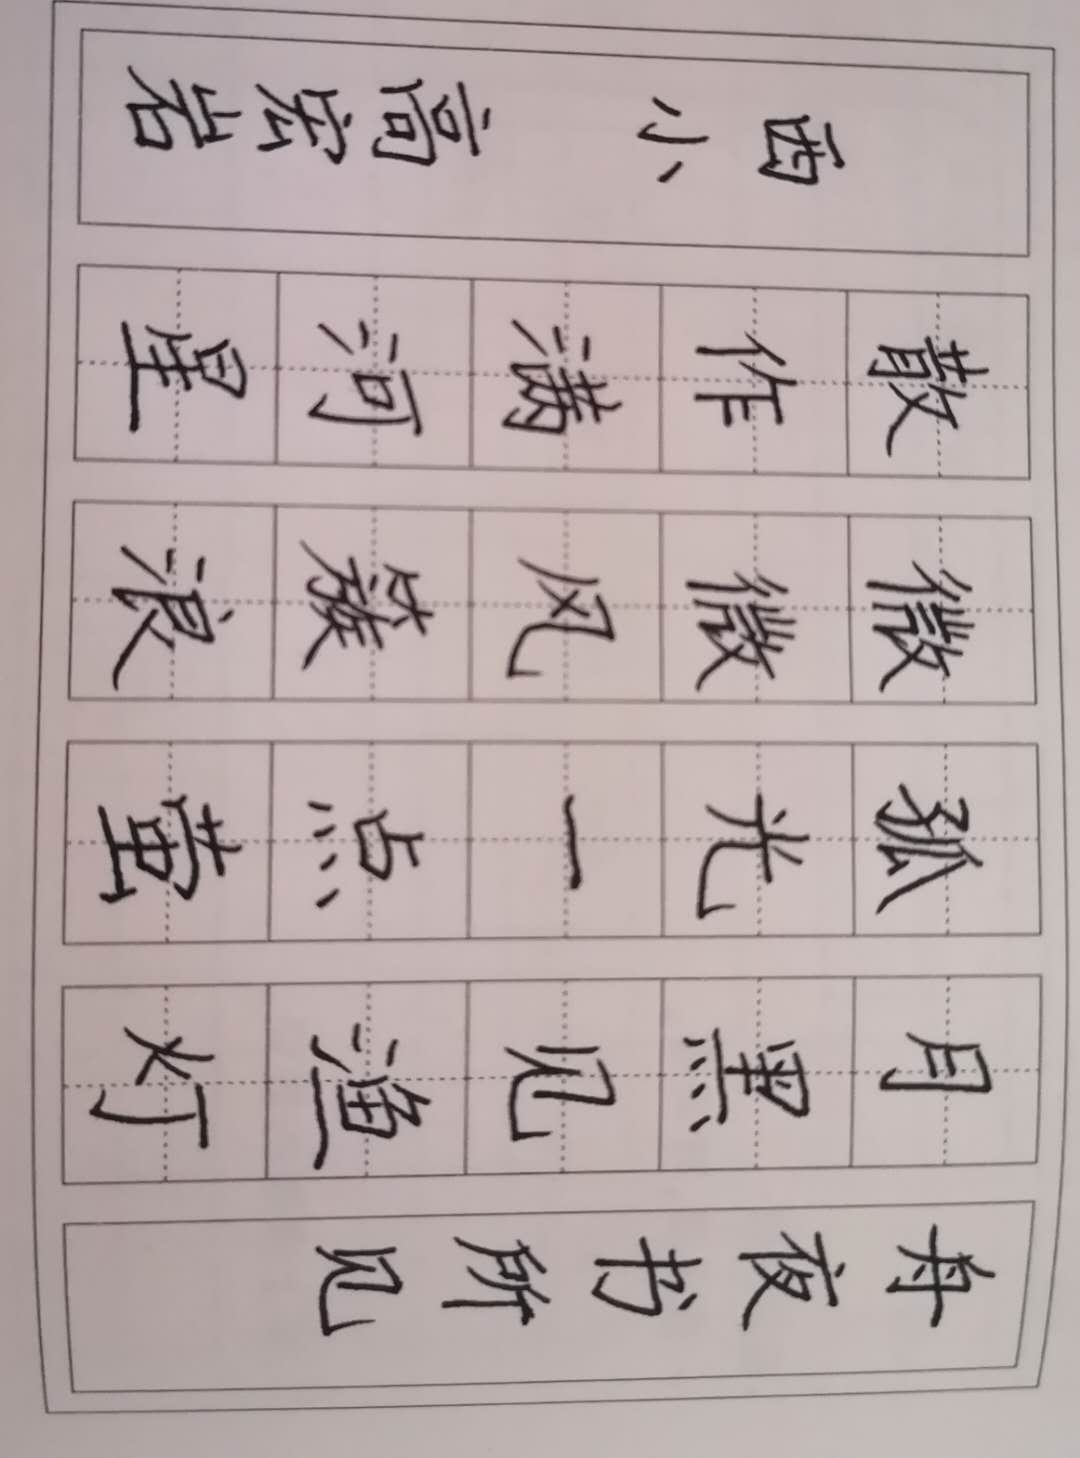 舟夜书所见
月黑见渔灯
孤光一点萤
微微风簇浪
散作满河星
西小 高宏岩